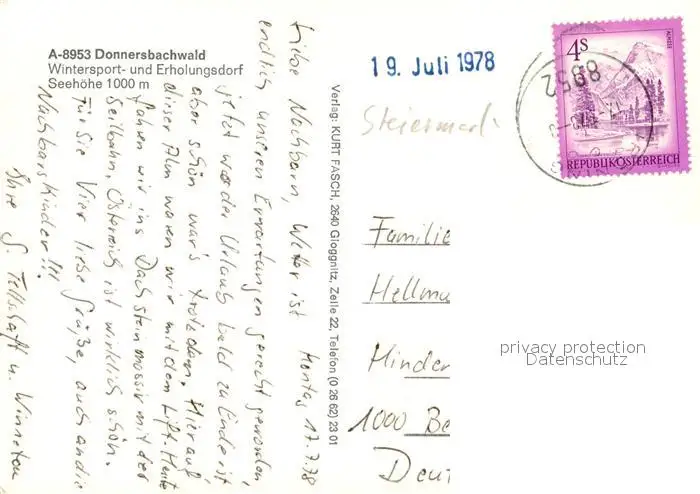 A-8953 Donnersbachwald
Wintersport- und Erholungsdorf
Seehöhe 1000 m
Montag 17.7.78
Liebe Nachbarn, Wetter ist
endlich unseren Erwartungen gerecht geworden,
jetzt wo der Urlaub bald zu Ende ist
aber schön war's trotzdem. Hier auf
dieser Alm waren wir mit dem Lift. Heute
fahren wir ins Dachsteinmassiv mit der
Seilbahn. Österreich ist wirklich schön.
Für Sie Vier liebe Grüße, auch an die
Nachbarskinder!!!
Ihre G. Tellschaft u. Winnetou
Verlag: KURT FASCH, 2640 Gloggnitz, Zeile 22, Telefon (0 26 62) 23 01
19. Juli 1978
Steiermark
4S
ALMSEE
REPUBLIK ÖSTERREICH
8952
Familie
Hellmu
Hinder
1000 Be
Deut
privacy protection
Datenschutz